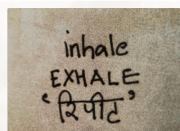 inhale
EXHALE
‘रिपीट’